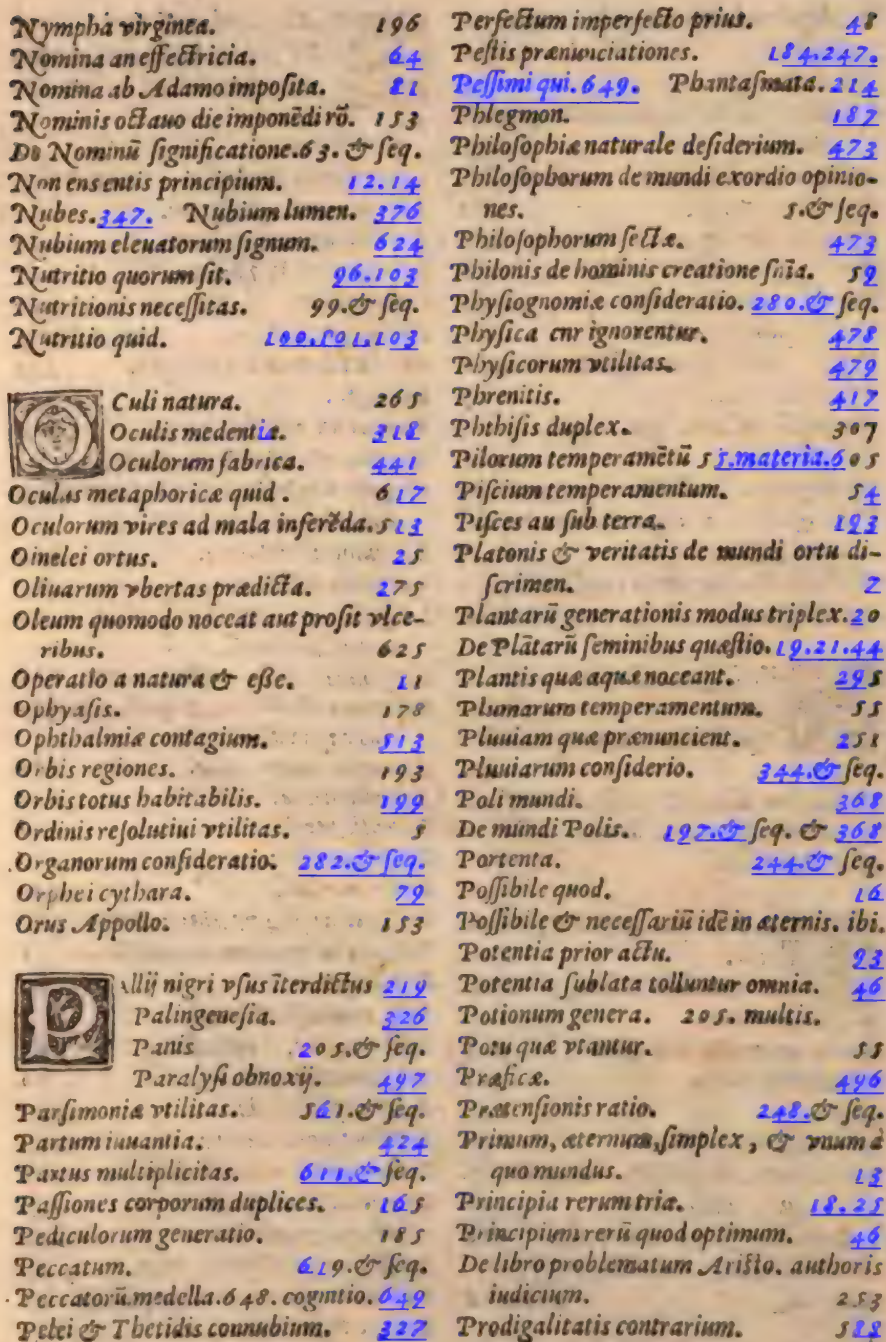 Nympha virginea. 196
Nomina an effectricia. 64
Nomina ab Adamo imposita. 81
Nominis octauo die imponēdi rō. 153
De Nominū significatione. 63. & seq.
Non ens entis principium. 12.14
Nubes. 347. Nubium lumen. 376
Nubium eleuatorum signum. 624
Nutritio quorum sit. 96.103
Nutritionis necessitas. 99. & seq.
Nutritio quid. 100.501.103
OCuli natura. 265
Oculis medentia. 318
Oculorum fabrica. 441
Oculus metaphoricæ quid. 617
Oculorum vires ad mala inferēda. 513
Oinelei ortus. 25
Oliuarum vbertas prædicta. 275
Oleum quomodo noceat aut prosit vlce-
ribus. 625
Operatio a natura & esse. 11
Ophyasis. 178
Ophthalmiæ contagium. 513
Orbis regiones. 193
Orbis totus habitabilis. 199
Ordinis resolutiui vtilitas. 5
Organorum consideratio. 282. & seq.
Orphei cythara. 79
Orus Appollo. 153
PAllij nigri vsus īterdictus 219
Palingenesia. 326
Panis 205. & seq.
Paralysi obnoxij. 497
Parsimoniæ vtilitas. 561. & seq.
Partum iuuantia. 424
Partus multiplicitas. 611. & seq.
Passiones corporum duplices. 165
Pediculorum generatio. 185
Peccatum. 619. & seq.
Peccatorū medella. 648. cognitio. 649
Pelei & Thetidis connubium. 327
Perfectum imperfecto prius. 48
Pestis prænunciationes. 184.247.
Pessimi qui. 649. Phantasmata. 214
Phlegmon. 187
Philosophiæ naturale desiderium. 473
Philosophorum de mundi exordio opinio-
nes. 5. & seq.
Philosophorum sectæ. 473
Philonis de hominis creatione snīa. 59
Physiognomiæ consideratio. 280. & seq.
Physica cur ignorentur. 478
Physicorum vtilitas. 479
Phrenitis. 417
Phthisis duplex. 307
Pilorum temperamētū 55. materia. 605
Piscium temperamentum. 54
Pisces au sub terra. 193
Platonis & veritatis de mundi ortu di-
scrimen. 2
Plantarū generationis modus triplex. 20
De Plātarū seminibus quæstio. 19.21.44
Plantis quæ aquæ noceant. 295
Plumarum temperamentum. 55
Pluuiam quæ prænuncient. 251
Pluuiarum considerio. 344. & seq.
Poli mundi. 368
De mundi Polis. 197. & seq. & 368
Portenta. 244. & seq.
Possibile quod. 16
Possibile & necessariū idē in æternis. ibi.
Potentia prior actu. 93
Potentia sublata tolluntur omnia. 46
Potionum genera. 205. multis.
Potu quæ vtantur. 55
Præficæ. 496
Prætensionis ratio. 248. & seq.
Primum, æternum, simplex, & vnum à
quo mundus. 13
Principia rerum tria. 18.25
Principium rerū quod optimum. 46
De libro problematum Aristo. authoris
iudicium. 253
Prodigalitatis contrarium. 588